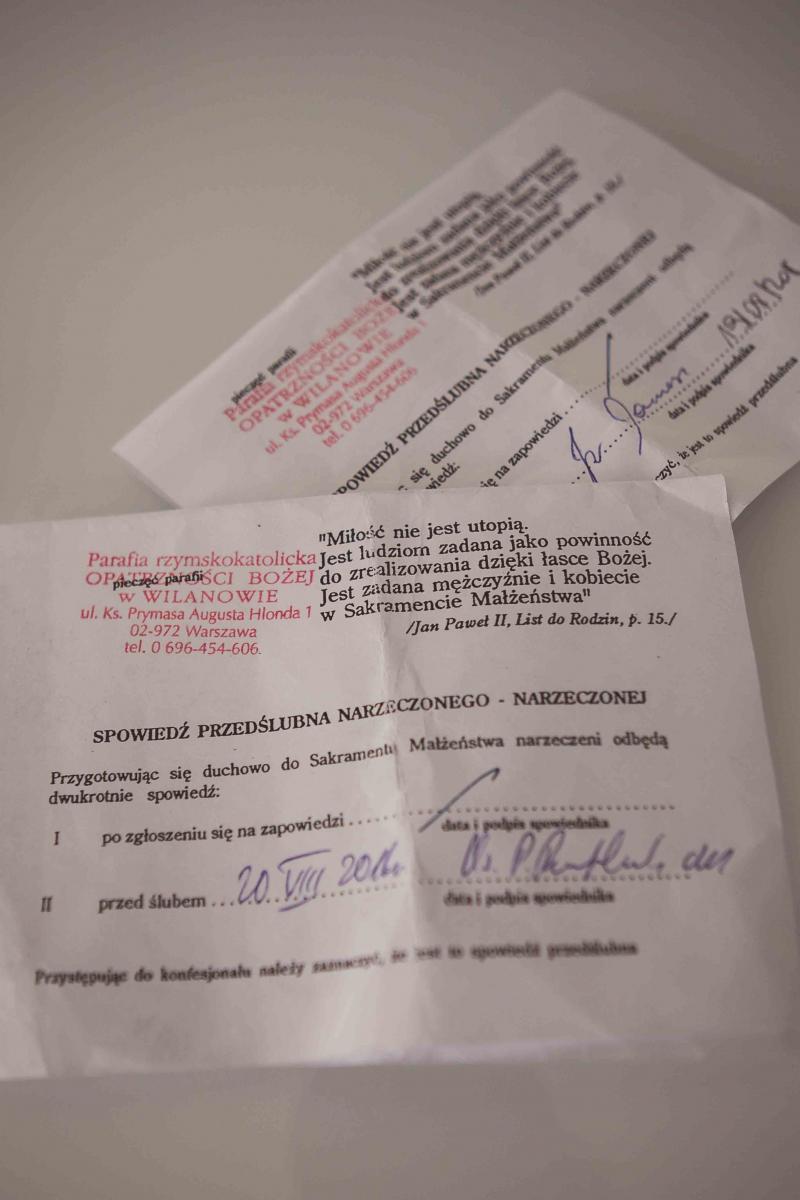 "Miłość nie jest utopią.
Jest ludziom zadana jako powinność
do zrealizowania dzięki łasce Bożej.
Jest zadana mężczyźnie i kobiecie
w Sakramencie Małżeństwa"
/Jan Paweł II, List do Rodzin, p. 15./
pieczęć parafii
Parafia rzymskokatolicka
OPATRZNOŚCI BOŻEJ
w WILANOWIE
ul. Ks. Prymasa Augusta Hlonda 1
02-972 Warszawa
tel. 0 696-454-606
POWIEDŹ PRZEDŚLUBNA NARZECZONEGO - NARZECZONEJ
się duchowo do Sakramentu Małżeństwa narzeczeni odbędą
wiedź:
się na zapowiedzi
data i podpis spowiednika
data i podpis spowiednika
czyć, że jest to spowiedź przedślubna
Parafia rzymskokatolicka
OPATRZNOŚCI BOŻEJ
w WILANOWIE
ul. Ks. Prymasa Augusta Hlonda 1
02-972 Warszawa
tel. 0 696-454-606.
pieczęć parafii
"Miłość nie jest utopią.
Jest ludziom zadana jako powinność
do zrealizowania dzięki łasce Bożej.
Jest zadana mężczyźnie i kobiecie
w Sakramencie Małżeństwa"
/Jan Paweł II, List do Rodzin, p. 15./
SPOWIEDŹ PRZEDŚLUBNA NARZECZONEGO - NARZECZONEJ
Przygotowując się duchowo do Sakramentu Małżeństwa narzeczeni odbędą
dwukrotnie spowiedź:
I po zgłoszeniu się na zapowiedzi
data i podpis spowiednika
II przed ślubem 20 VIII
data i podpis spowiednika
Przystępując do konfesjonału należy zaznaczyć, że jest to spowiedź przedślubna